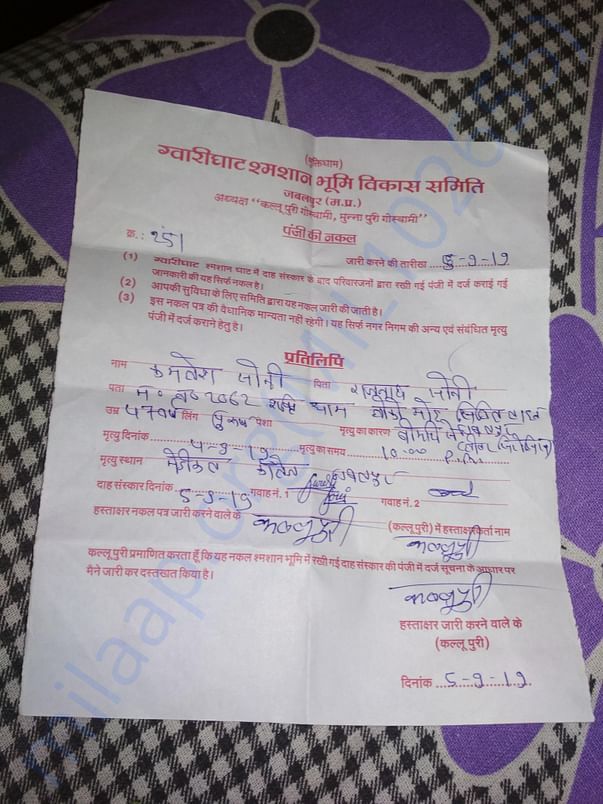 (मुक्तिधाम)
ग्वारीघाट श्मशान भूमि विकास समिति
जबलपुर (म.प्र.)
अध्यक्ष "कल्लू पुरी गोस्वामी, मुन्ना पुरी गोस्वामी"
पंजी की नकल
क्र.: 251
जारी करने की तारीख 5-9-19
(1) ग्वारीघाट श्मशान घाट में दाह संस्कार के बाद परिवारजनों द्वारा रखी गई पंजी में दर्ज कराई गई
जानकारी की यह सिर्फ नकल है।
(2) आपकी सुविधा के लिए समिति द्वारा यह नकल जारी की जाती है।
(3) इस नकल पत्र की वैधानिक मान्यता नहीं रहेगी। यह सिर्फ नगर निगम की अन्य एवं संबंधित मृत्यु
पंजी में दर्ज कराने हेतु है।
प्रतिलिपि
नाम कमलेश सोनी पिता सोनी
पता म० 2062
उम्र लिंग पुरुष पेशा मृत्यु का कारण
मृत्यु दिनांक 4-9-19 मृत्यु का समय 10:00 P.M.
मृत्यु स्थान मेडीकल कॉलेज जबलपुर
दाह संस्कार दिनांक 5-9-19 गवाह नं. 1 गवाह नं. 2
हस्ताक्षर नकल पत्र जारी करने वाले के कल्लूपुरी (कल्लू पुरी) में हस्ताक्षरकर्ता नाम कल्लूपुरी
कल्लू पुरी प्रमाणित करता हूँ कि यह नकल श्मशान भूमि में रखी गई दाह संस्कार की पंजी में दर्ज सूचना के आधार पर
मैने जारी कर दस्तखत किया है।
कल्लूपुरी
हस्ताक्षर जारी करने वाले के
(कल्लू पुरी)
दिनांक 5-9-19